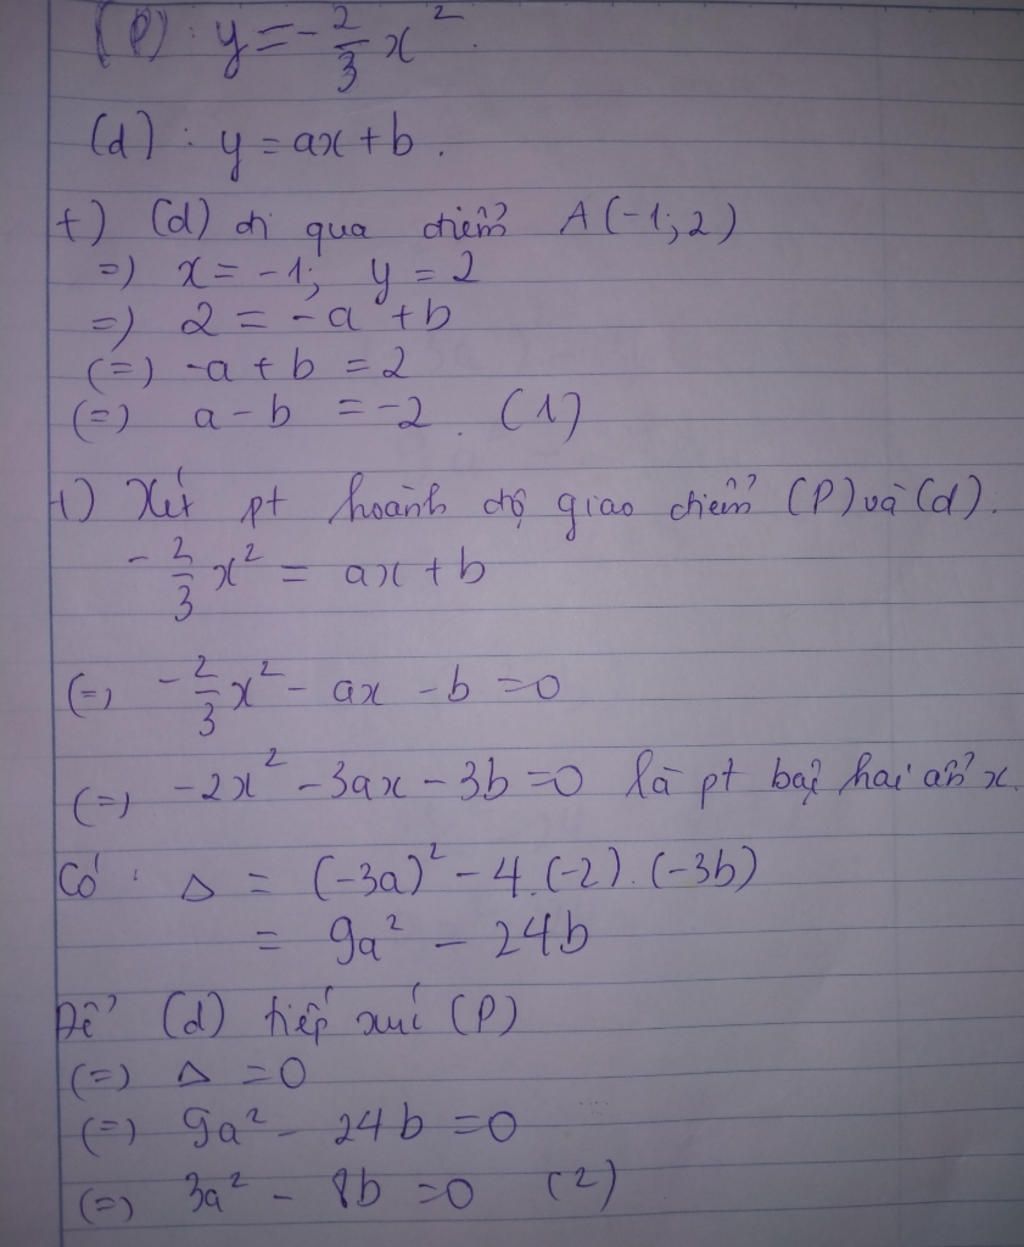 (P) : y = -2/3 x².
(d) : y = ax + b.
+) (d) đi qua điểm A(-1; 2)
=) x = -1; y = 2
=) 2 = -a + b
(=) -a + b = 2
(=) a - b = -2. (1)
+) Xét pt hoành độ giao điểm (P) và (d).
-2/3 x² = ax + b
(=) -2/3 x² - ax - b = 0
(=) -2x² - 3ax - 3b = 0 là pt bậc hai ẩn x.
Có : Δ = (-3a)² - 4.(-2).(-3b)
= 9a² - 24b
Để (d) tiếp xúc (P)
(=) Δ = 0
(=) 9a² - 24b = 0
(=) 3a² - 8b = 0 (2)